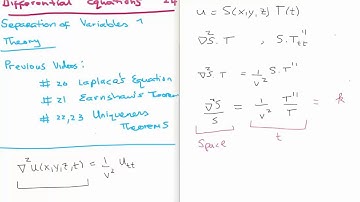 Differential Equations 24
Separation of Variables 1
Theory
Previous Videos:
# 20 Laplace's Equation
# 21 Earnshaw's Theorem
# 22,23 Uniqueness
Theorems
∇²u(x,y,z,t) = 1/v² u_tt
u = S(x,y,z) T(t)
∇²S.T , S.T''_tt
∇²S T = 1/v² S.T''
∇²S/S = 1/v² T''/T = k
Space t